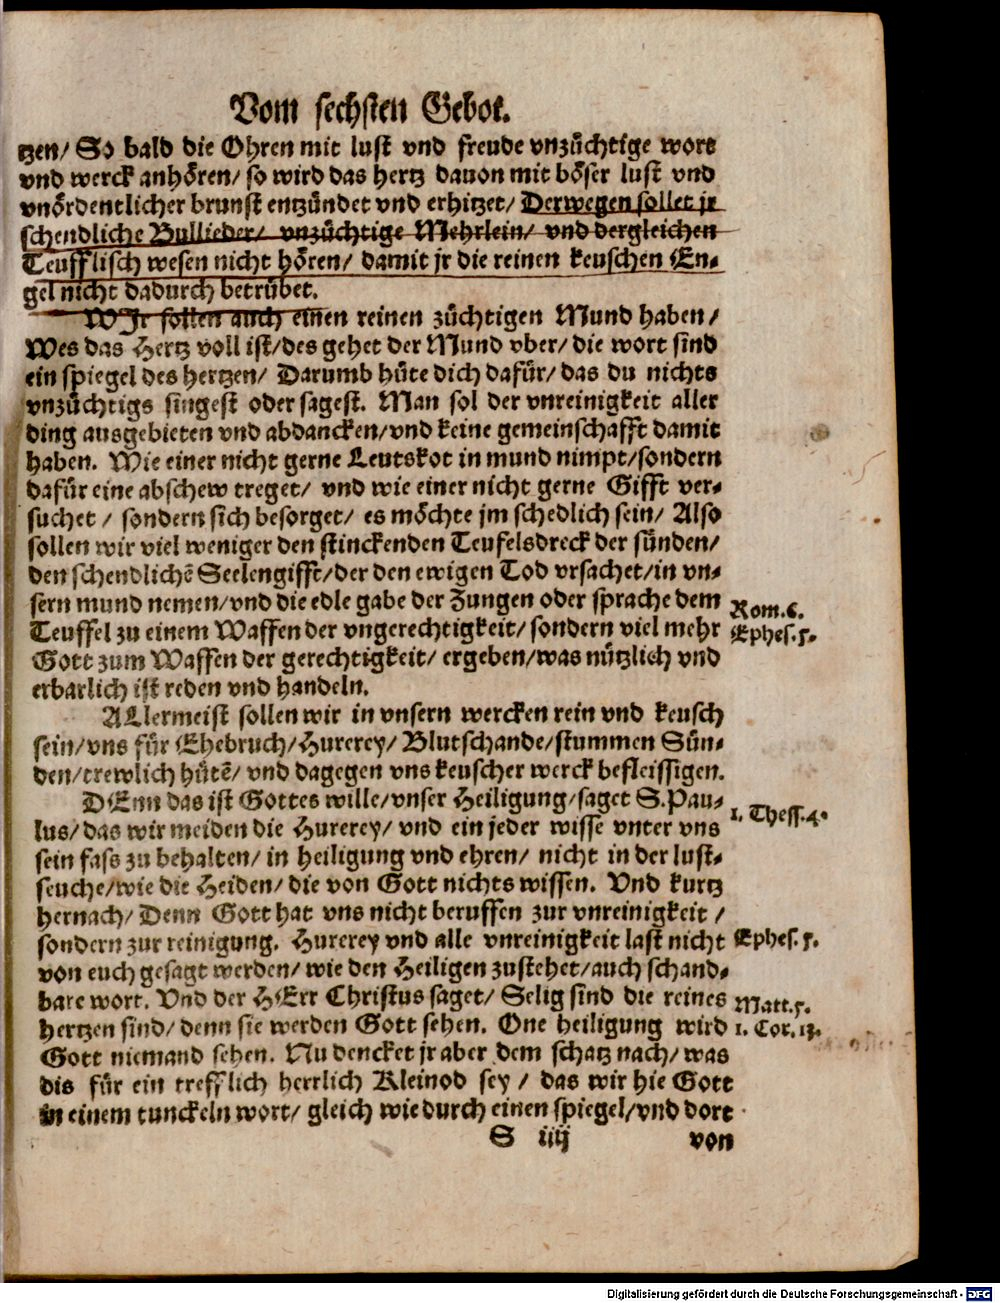 Vom sechsten Gebot.
tzen/ So bald die Ohren mit lust vnd freude vnzüchtige wort
vnd werck anhören/ so wird das hertz dauon mit böser lust vnd
vnördentlicher brunst entzündet vnd erhitzet/ Derwegen sollet jr
schendliche Bullieder/ vnzüchtige Mehrlein/ vnd dergleichen
Teufflisch wesen nicht hören/ damit jr die reinen keuschen En-
gel nicht dadurch betrübet.
WJr sollen auch einen reinen züchtigen Mund haben/
Wes das Hertz voll ist/ des gehet der Mund vber/ die wort sind
ein spiegel des hertzen/ Darumb hüte dich dafür/ das du nichts
vnzüchtigs singest oder sagest. Man sol der vnreinigkeit aller
ding ausgebieten vnd abdancken/ vnd keine gemeinschafft damit
haben. Wie einer nicht gerne Leutskot in mund nimpt/ sondern
dafür eine abschew treget/ vnd wie einer nicht gerne Gifft ver-
suchet / sondern sich besorget/ es möchte jm schedlich sein/ Also
sollen wir viel weniger den stinckenden Teufelsdreck der sünden/
den schendlichē Seelengifft/ der den ewigen Tod vrsachet/ in vn-
sern mund nemen/ vnd die edle gabe der Zungen oder sprache dem
Rom. 6.
Teuffel zu einem Waffen der vngerechtigkeit/ sondern viel mehr
Ephes. 5.
Gott zum Waffen der gerechtigkeit/ ergeben/ was nützlich vnd
erbarlich ist reden vnd handeln.
ALlermeist sollen wir in vnsern wercken rein vnd keusch
sein/ vns für Ehebruch/ Hurerey/ Blutschande/ stummen Sün-
den/ trewlich hütē/ vnd dagegen vns keuscher werck befleissigen.
DEnn das ist Gottes wille/ vnser Heiligung/ saget S. Pau-
1. Thess. 4.
lus/ das wir meiden die Hurerey/ vnd ein jeder wisse vnter vns
sein fass zu behalten/ in heiligung vnd ehren/ nicht in der lust-
seuche/ wie die Heiden/ die von Gott nichts wissen. Vnd kurtz
hernach/ Denn Gott hat vns nicht beruffen zur vnreinigkeit /
sondern zur reinigung. Hurerey vnd alle vnreinigkeit last nicht
Ephes. 5.
von euch gesagt werden/ wie den Heiligen zustehet/ auch schand-
bare wort. Vnd der HErr Christus saget/ Selig sind die reines
Matt. 5.
hertzen sind/ denn sie werden Gott sehen. One heiligung wird
1. Cor. 13.
Gott niemand sehen. Nu dencket jr aber dem schatz nach/ was
dis für ein trefflich herrlich Kleinod sey / das wir hie Gott
in einem tunckeln wort/ gleich wie durch einen spiegel/ vnd dort
S iiij von
Digitalisierung gefördert durch die Deutsche Forschungsgemeinschaft - DFG